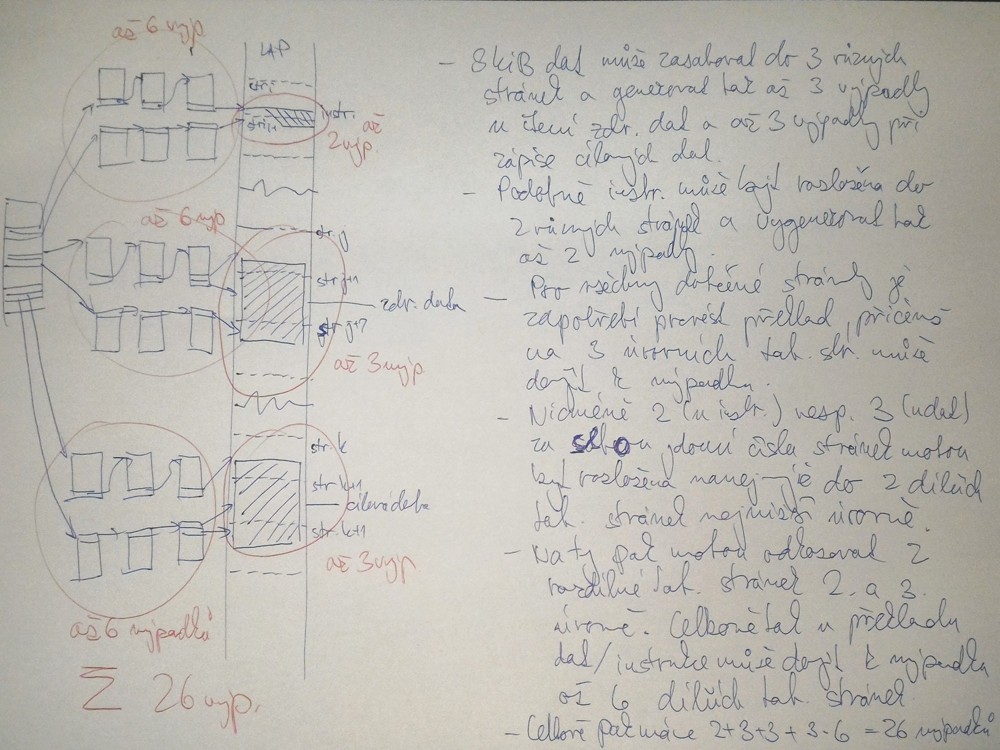 až 6 výp.
LAP
str i
str i+1
instr.
až
2 výp.
až 6 výp
str. j
str j+1
zdr. data
až 3 výp
str. k
str k+1
cílová data
str. k+1
až 3 výp
až 6 výpadků
Σ 26 výp.
- 8 kiB dat může zasahovat do 3 různých
stránek a generovat tak až 3 výpadky
u čtení zdr. dat a až 3 výpadky při
zápise cílových dat.
- Podobně instr. může být rozložena do
2 různých stránek a vygenerovat tak
až 2 výpadky.
- Pro všechny dotčené stránky je
zapotřebí provést překlad, přičemž
na 3 úrovních tab. str. může
dojít k výpadku.
- Nicméně 2 (u instr.) resp. 3 (u dat)
za sebou jdoucí čísla stránek mohou
být rozložena nanejvýš do 2 dílčích
tab. stránek nejnižší úrovně.
- Na ty pak mohou odkazovat 2
rozdílné tab. stránek 2. a 3.
úrovně. Celkově tak u překladu
dat/instrukce může dojít k výpadku
až 6 dílčích tab. stránek
- Celkově pak máme 2+3+3+3·6 = 26 výpadků